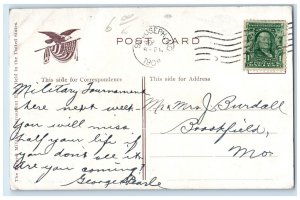 ST. JOSEPH, MO.
1908
POST CARD
This side for Correspondence
This side for Address
Military Tournament
here next week
You will miss
half your life if
you don't see it.
Are you coming?
George
Mr & Mrs. J. Burdall
Brookfield,
Mo.